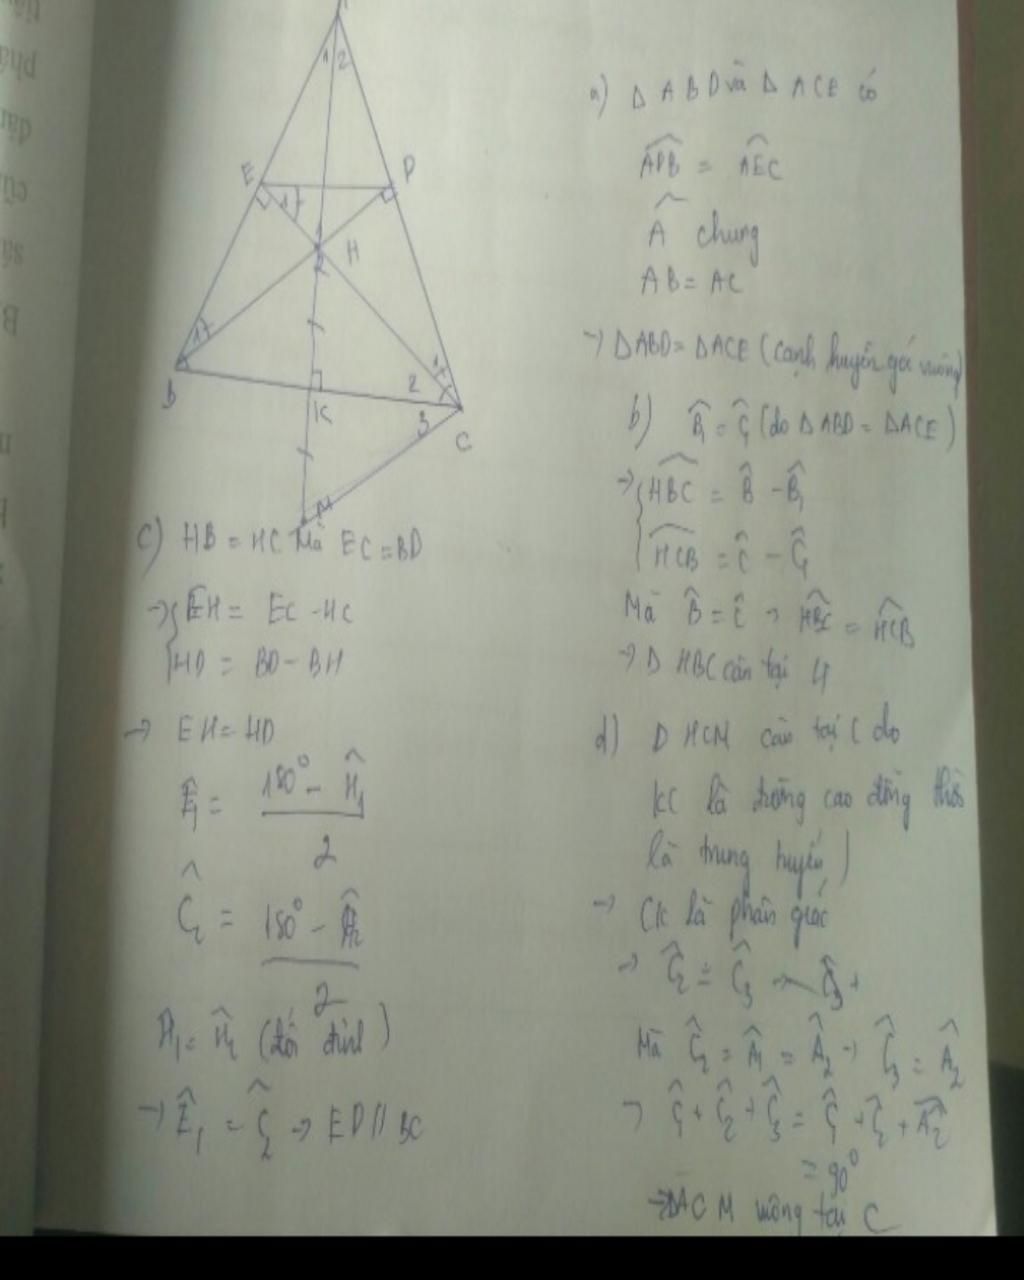 1 2
E
D
1
1
H
2
1
1
2
B
K
3
C
M
a) Δ ABD và Δ ACE có
ADB = AEC
A chung
AB = AC
→ ΔABD = ΔACE (cạnh huyền góc vuông)
b) B̂₁ = Ĉ₁ (do Δ ABD = ΔACE)
→ { HBC = B̂ - B̂₁
HCB = Ĉ - Ĉ₁
Mà B̂ = Ĉ → HBC = HCB
→ Δ HBC cân tại H
c) HB = HC Mà EC = BD
→ { EH = EC - HC
HD = BD - BH
→ EH = HD
Ê₁ = 180° - Ĥ₁
2
Ĉ₂ = 180° - Ĥ₂
2
Ĥ₁ = Ĥ₂ (đối đỉnh)
→ Ê₁ = Ĉ₂ → ED // BC
d) Δ HCM cân tại C do
KC là đường cao đồng thời
là trung tuyến)
→ CK là phân giác
→ Ĉ₂ = Ĉ₃
Mà Ĉ₂ = Â₁ = Â₂ → Ĉ₃ = Â₂
→ Ĉ₁ + Ĉ₂ + Ĉ₃ = Ĉ₁ + Ĉ₂ + Â₂
= 90°
→ ΔACM vuông tại C